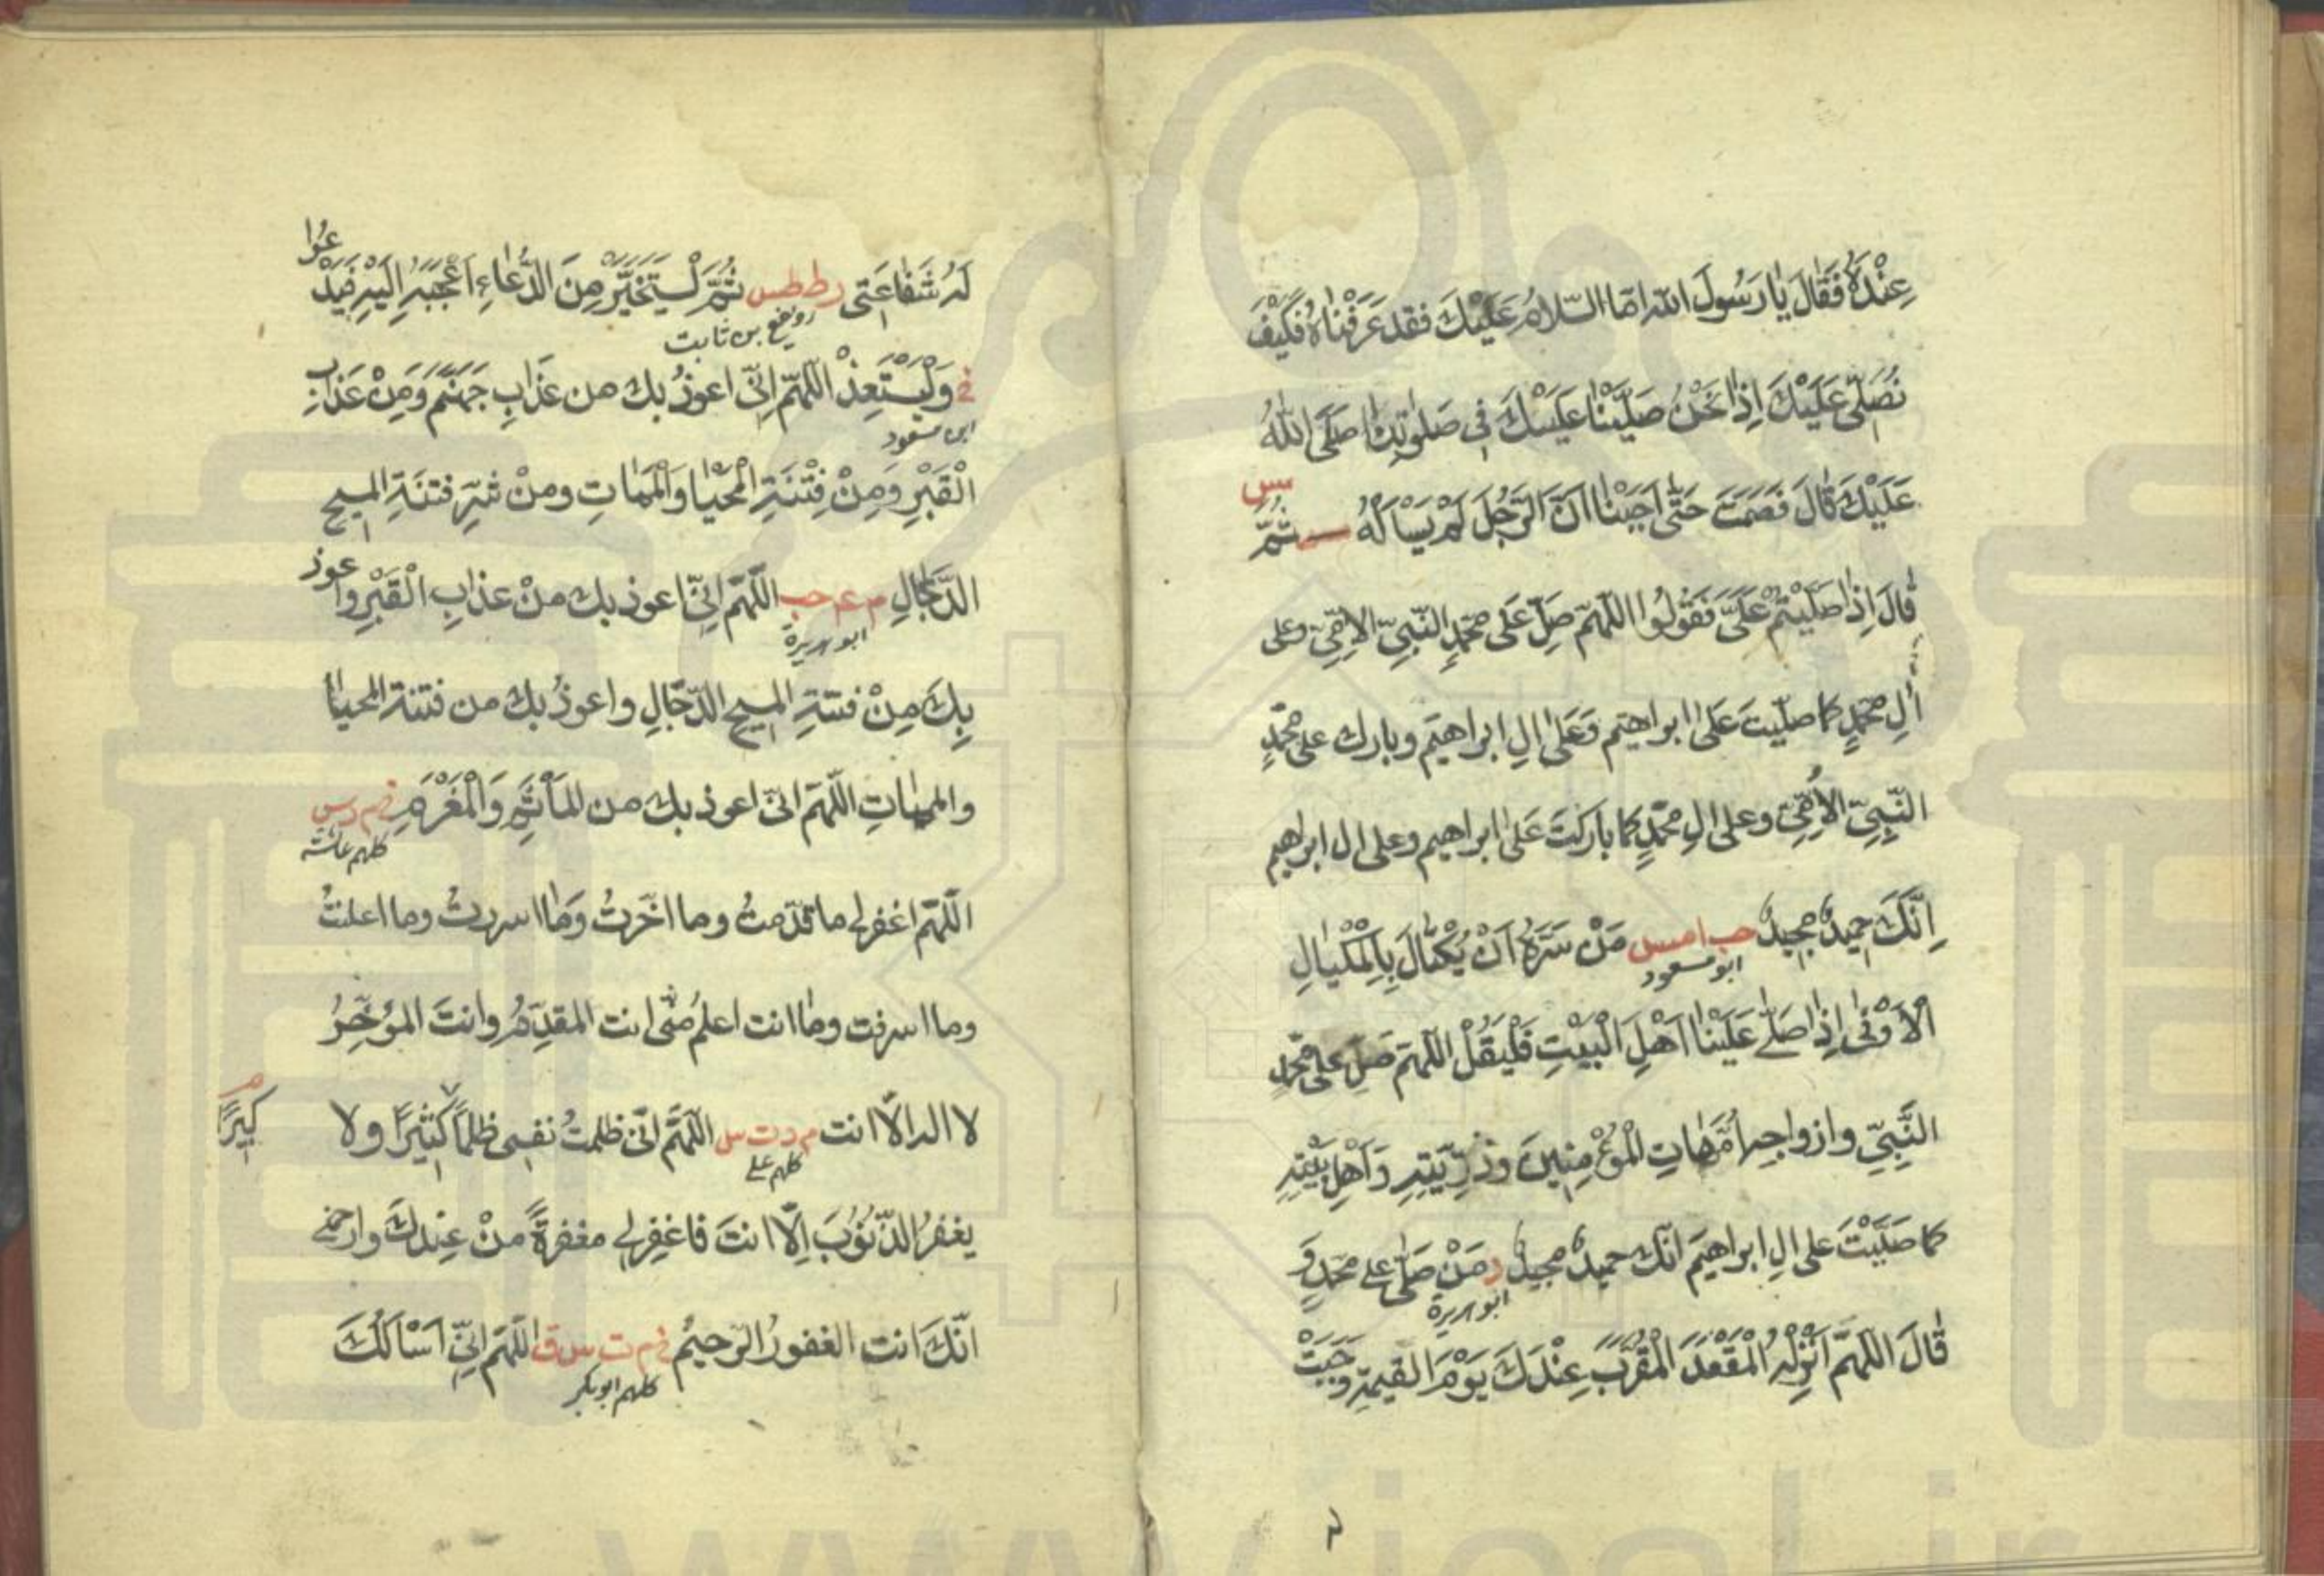 عِنْدَهُ فَقَالَ يَا رَسُولَ اللّه امّا السّلامُ عَلَيْكَ فقد عَرَفْنَاهُ فَكَيْفَ
نُصَلِّى عَلَيْكَ اِذَا نَحْنُ صَلَّيْنَا عَلَيْكَ فِى صَلٰوتِنَا صَلَّى اللّٰهُ
عَلَيْكَ قَالَ فَصَمَتَ حَتّٰى اَحْبَبْنَا اَنَّ الرَّجُلَ لَمْ يَسْاَلْهُ مس ثُمَّ
قَالَ اِذَا صَلَّيْتُمْ عَلَىَّ فَقُولُوا اللّهمّ صَلِّ عَلٰى محمّدٍ النّبِىّ الاُمِّىّ وعلى
اٰلِ محمّدٍ كما صلّيتَ عَلٰى ابراهيمَ وَعَلٰى اٰلِ ابراهيمَ وبارك على محمّدٍ
النَّبِىّ الاُمِّىّ وعلى اٰلِ محمّدٍ كما باركتَ عَلٰى ابراهيم وعلى ال ابراهيم
اِنَّكَ حميدٌ مجيدٌ حب ا مس مَنْ سَرَّهُ اَنْ يُكْتَالَ بِالْمِكْيَالِ
ابو مسعود
الاَوْفٰى اِذَا صَلّٰى عَلَيْنَا اَهْلَ الْبَيْتِ فَلْيَقُلْ اللّهمّ صَلِّ على محمّدٍ
النَّبِىِّ وازواجِه اُمّهاتِ الْمُؤْمِنِينَ وذُرِّيَّتِهِ وَاَهْلِ بَيْتِهِ
كما صَلَّيْتَ على اٰلِ ابراهيمَ انّك حميدٌ مجيدٌ د مَنْ صَلّٰى على محمّدٍ وَ
ابو هريرة
قَالَ اللّهمّ اَنْزِلْهُ الْمَقْعَدَ الْمُقَرَّبَ عِنْدَكَ يَوْمَ القيمةِ وَجَبَتْ
لَهُ شَفَاعَتِى ر ط طس ثُمَّ لْيَتَخَيَّرْ مِنَ الدُّعَاءِ اَعْجَبَهُ اِلَيْهِ فَيَدْعُوا
رويفع بن ثابت
خ وَلْيَسْتَعِذْ اللّهمّ اِنّى اعوذُ بك من عَذَابِ جَهَنَّمَ وَمِنْ عَذَابِ
ابن مسعود
الْقَبْرِ وَمِنْ فِتْنَةِ الْمَحْيَا وَالْمَمَاتِ ومنْ شرِّ فتنَةِ المسيح
الدَّجَّالِ م عه حب اللّهمّ اِنّى اعوذ بك منْ عذابِ الْقَبْرِ واعوذ
ابو هريرة
بِكَ مِنْ فتنةِ المسيح الدّجّالِ واعوذُ بك من فتنة المحيا
والمماتِ اللّهمّ انّى اعوذ بك من المَاْثَمِ وَالْمَغْرَمِ خ م د س
كلهم عائشة
اللّهمّ اغفرلى ما قدّمتُ وما اخّرتُ وَمَا اسررتُ وما اعلنتُ
وما اسرفت وما انت اعلمُ منّى انت المقدِّمُ وانتَ المؤخِّرُ
لا اله الّا انت م د ت س اللّهمّ انّى ظلمتُ نفسى ظلمًا كثيرًا ولا
كبيرًا م
كلهم على
يغفرُ الذّنُوبَ اِلّا انتَ فاغفِرلى مغفرةً منْ عِندكَ وارحمنى
انّكَ انت الغفورُ الرّحيمُ خ م ت س ق اللّهمّ اِنّى اَسْاَلُكَ
كلهم ابو بكر